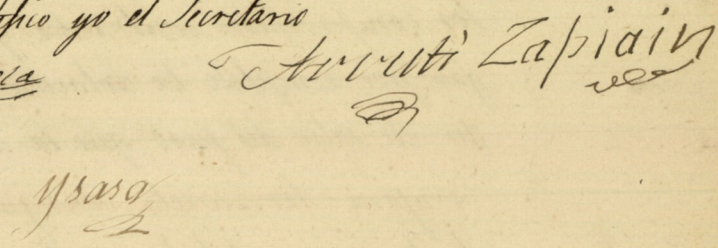 yo el Secretario
Arruti Zapiain
Ysasa